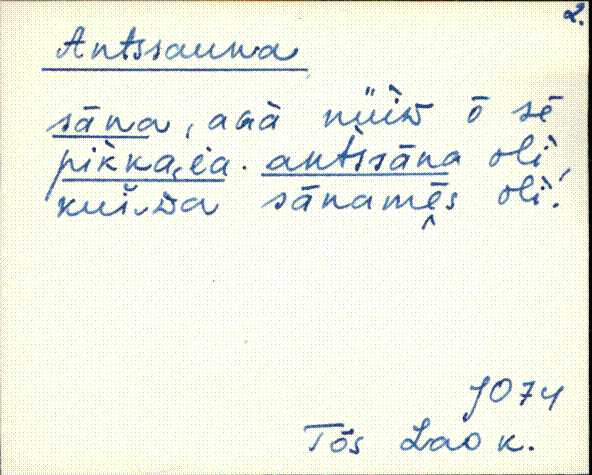 2.
Antssauna
sāna, aGà nüìd ō sē
pikka, ea. antssāna oli
kui-da sānamēs olì!
J074
Tōs Lao k.